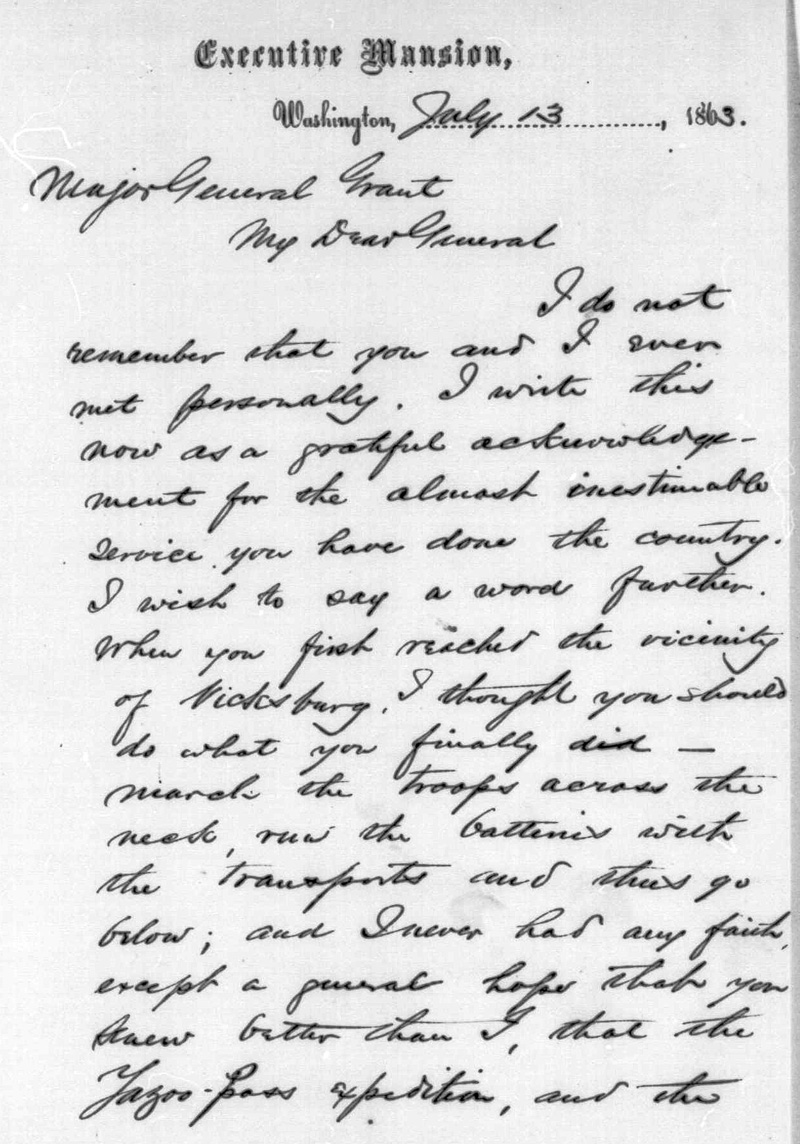 Executive Mansion,
Washington, July 13, 1863.
Major General Grant
My Dear General
I do not
remember that you and I ever
met personally. I write this
now as a grateful acknowledge-
ment for the almost inestimable
service you have done the country.
I wish to say a word further.
When you first reached the vicinity
of Vicksburg, I thought you should
do what you finally did —
march the troops across the
neck, run the batteries with
the transports and thus go
below; and I never had any faith,
except a general hope that you
knew better than I, that the
Yazoo-Pass expedition, and the